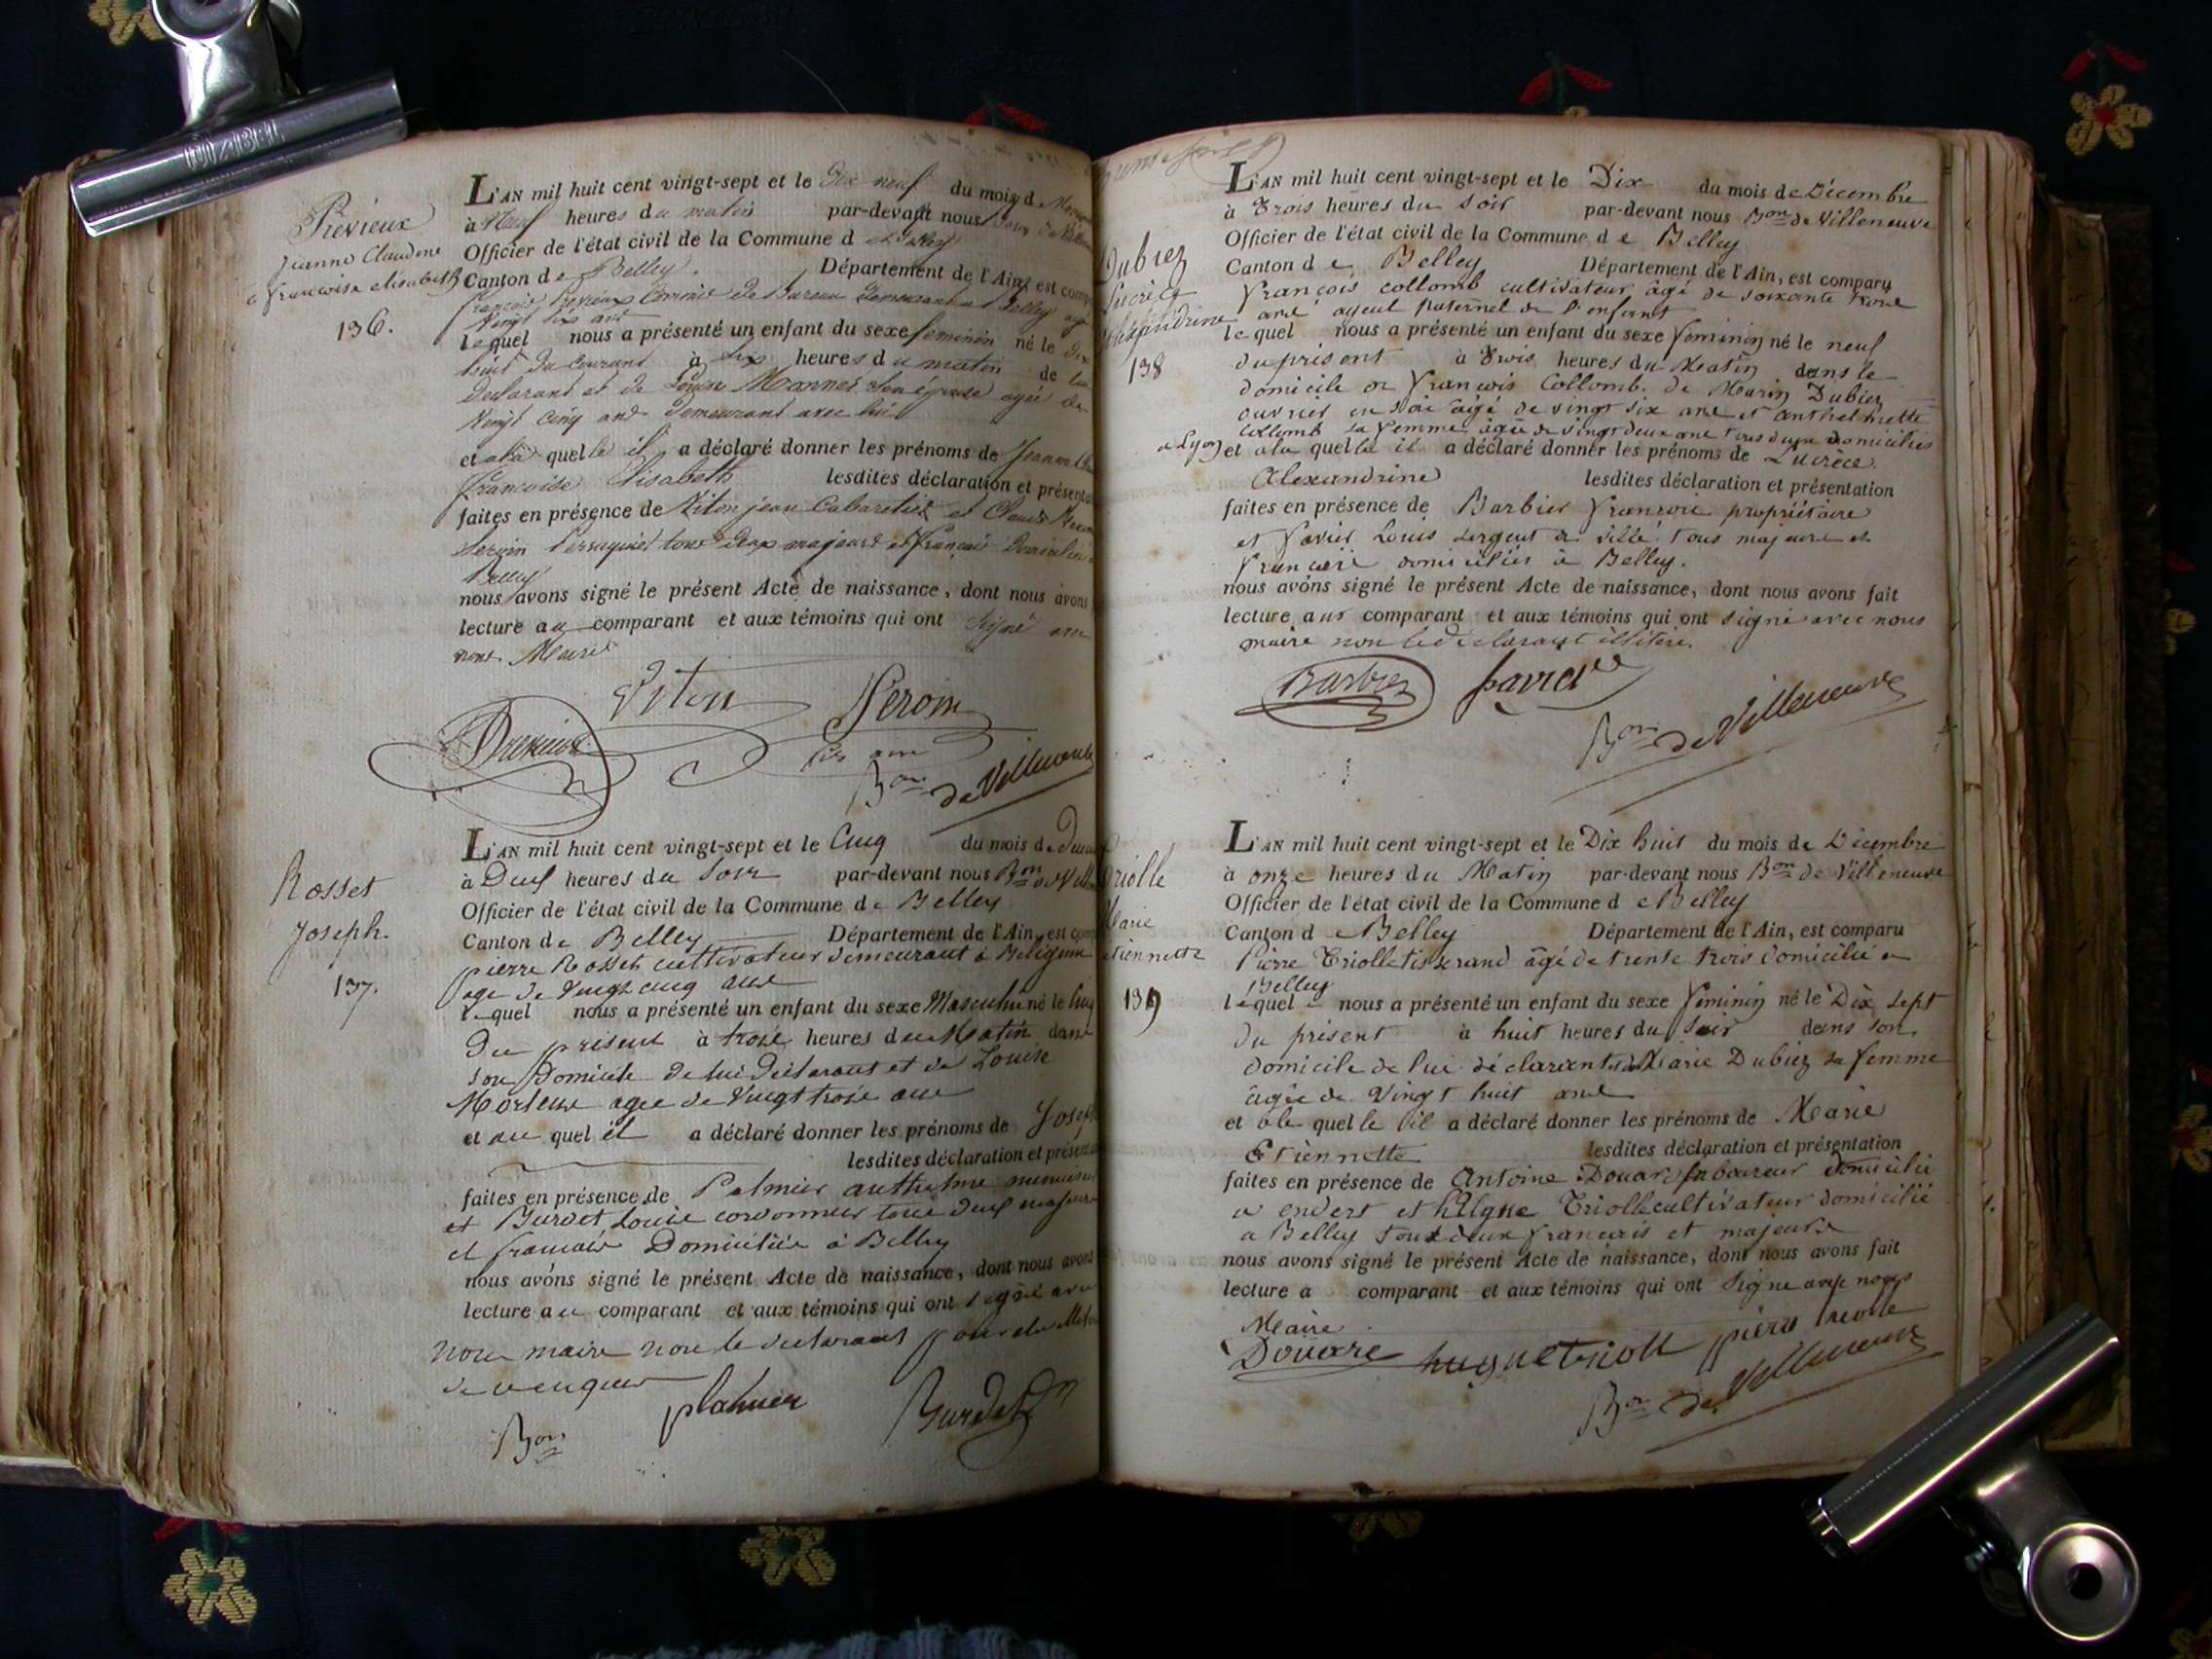 DIABEL
Prévieux
Jeanne Claudine
françoise élisabeth
136.
L'AN mil huit cent vingt-sept et le dix neuf du mois d
à Neuf heures du matin par-devant nous
Officier de l'état civil de la Commune d
Canton de Belley. Département de l'Ain, est comp
françois Prévieux Commis de Bureau demeurant a Belley agé
Vingt six ans
lequel nous a présenté un enfant du sexe feminin né le dix
huit du courant à six heures du matin de lui
Declarant et de Louise Monnet son épouse agée de
Vingt cinq ans demeurant avec lui
et à la quelle il a déclaré donner les prénoms de Jeanne
françoise Elisabeth lesdites déclaration et présenta
faites en présence de Viton jean Cabaretier et Claude
Peroin Perruquier tous deux majeurs et français
Belley
nous avons signé le présent Acte de naissance, dont nous avons
lecture au comparant et aux témoins qui ont signé avec
nous Maire
Viton Peroin
Prévieux
Bon de Villeneuve
Rosset
Joseph.
137.
L'AN mil huit cent vingt-sept et le Cinq du mois de
à Deux heures du Soir par-devant nous Bon de Vill
Officier de l'état civil de la Commune de Belley
Canton de Belley Département de l'Ain, est comp
pierre Rosset cultivateur demeurant à
age de Vingt cinq ans
lequel nous a présenté un enfant du sexe Masculin né le Cinq
Du présent à trois heures du Matin dans
son Domicile de lui Déclarant et de Louise
agée de Vingt trois ans
et au quel il a déclaré donner les prénoms de Joseph
lesdites déclaration et présenta
faites en présence de Palmier anthelme menuisier
et Burdet Louis cordonnier tous deux majeurs
et français Domiciliés à Belley
nous avons signé le présent Acte de naissance, dont nous avons
lecture au comparant et aux témoins qui ont signé avec
nous maire non le declarant pour
de ce enquis
palmier Burdet
Bon
Dubiez
Lucrèce
Alexandrine
138
L'AN mil huit cent vingt-sept et le Dix du mois de Décembre
à Trois heures du soir par-devant nous Bon de Villeneuve
Officier de l'état civil de la Commune de Belley
Canton de Belley Département de l'Ain, est comparu
François collomb cultivateur âgé de soixante
ans ayeul paternel de l'enfant
lequel nous a présenté un enfant du sexe Féminin né le neuf
du présent à Trois heures du Matin dans le
domicile de François Collomb. de Marin Dubiez
ouvrier en soie âgé de vingt six ans et Anthelmette
Collomb sa femme âgée de vingt deux ans tous deux domiciliés
a Lyon et a la quelle il a déclaré donner les prénoms de Lucrèce
Alexandrine lesdites déclaration et présentation
faites en présence de Barbier François propriétaire
et favier Louis sergent de ville tous majeurs et
Français domiciliés à Belley.
nous avons signé le présent Acte de naissance, dont nous avons fait
lecture aux comparant et aux témoins qui ont signé avec nous
maire non le déclarant illitéré.
Barbier favier
Bon de Villeneuve
Triolle
Marie
étiennette
139
L'AN mil huit cent vingt-sept et le Dix huit du mois de Décembre
à onze heures du Matin par-devant nous Bon de Villeneuve
Officier de l'état civil de la Commune de Belley
Canton de Belley Département de l'Ain, est comparu
Pierre Triolle tisserand âgé de trente trois domicilié a
Belley
lequel nous a présenté un enfant du sexe Féminin né le Dix sept
du présent à huit heures du soir dans son
domicile de lui déclarant et de Marie Dubiez sa femme
âgée de vingt huit ans
et a la quelle il a déclaré donner les prénoms de Marie
Etiennette lesdites déclaration et présentation
faites en présence de Antoine Douare laboureur domicilié
a endert et hugne Triolle cultivateur domicilié
a Belley tous deux français et majeurs
nous avons signé le présent Acte de naissance, dont nous avons fait
lecture a comparant et aux témoins qui ont signé avec nous
Maire.
Douare hugne triolle piere treolle
Bon de Villeneuve